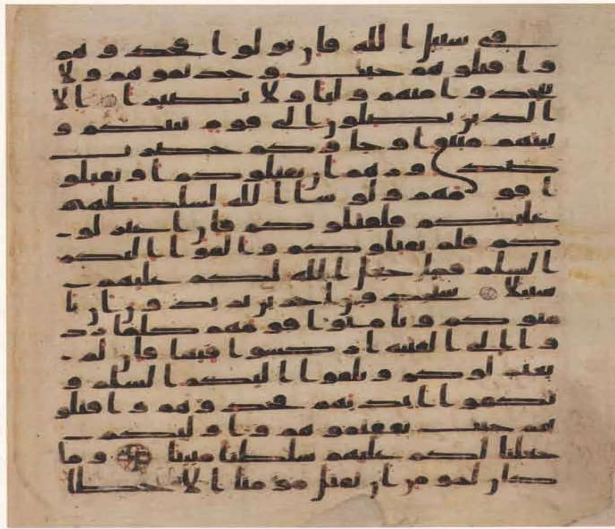 في سبيل الله فان تولوا فخذوهم
واقتلوهم حيث وجدتموهم ولا
تتخذوا منهم وليا ولا نصيرا الا
الذين يصلون الى قوم بينكم و
بينهم ميثق او جاوكم حصرت
صدورهم ان يقتلوكم او يقتلو
ا قومهم ولو شا الله لسلطهم
عليكم فلقتلوكم فان اعتزلو
كم فلم يقتلوكم والقوا اليكم
السلم فما جعل الله لكم عليهم
سبيلا ستجدون اخرين يريدون ان يا
منوكم ويامنوا قومهم كلما ردو
ا الى الفتنة اركسوا فيها فان لم
يعتزلوكم ويلقوا اليكم السلم و
يكفوا ايديهم فخذوهم واقتلو
هم حيث ثقفتموهم واوليكم
جعلنا لكم عليهم سلطنا مبينا وما
كان لمومن ان يقتل مومنا الا خطا